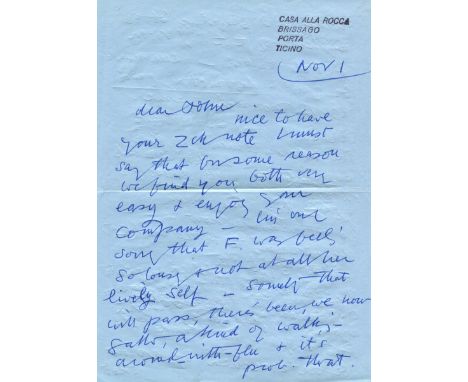 CASA ALLA ROCCA
BRISSAGO
PORTA
TICINO
Nov 1
dear nice to have
your note I must
say that for some reason
we find you both very
easy & enjoy your
company — I'm only
sorry that F. was feeling
so lousy & not at all her
lively self — surely that
will pass, there's been, we now
gather, a kind of walking-
around-with-flu & it's
prob. that.